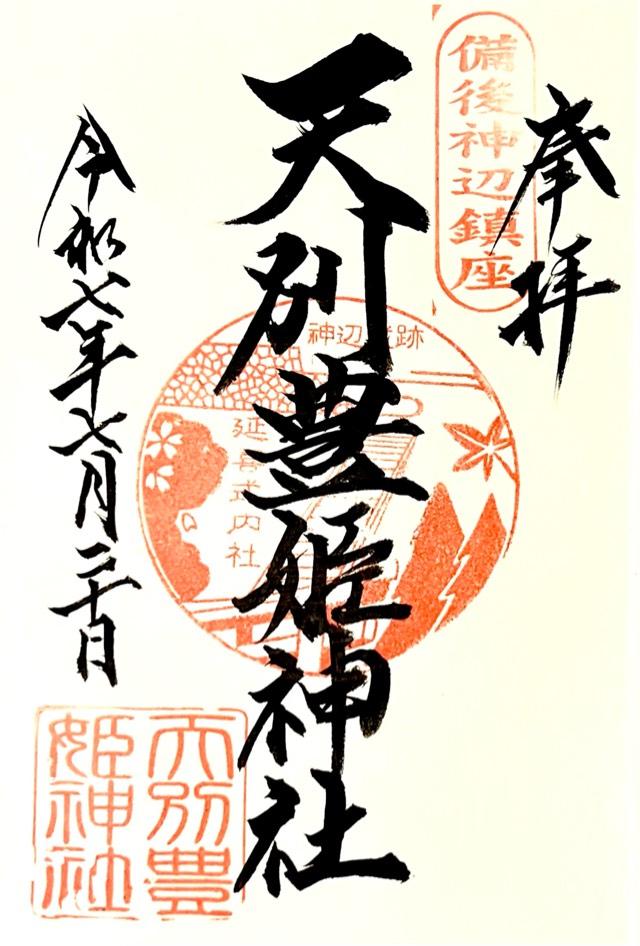 奉拝
備後神辺鎮座
天別豊姫神社
神辺 跡
延喜式内社
令和七年七月二十日
天別豊
姫神社